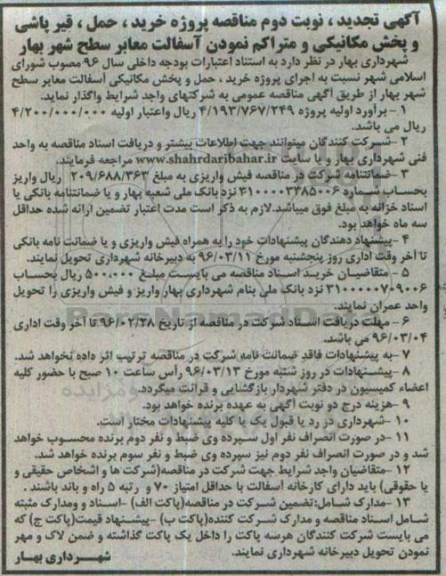 آگهی تجدید ، نوبت دوم مناقصه پروژه خرید ، حمل ، قیر پاشی
و پخش مکانیکی و متراکم نمودن آسفالت معابر سطح شهر بهار
شهرداری بهار در نظر دارد به استناد اعتبارات بودجه داخلی سال ۹۶ مصوب شورای
اسلامی شهر نسبت به اجرای پروژه خرید ، حمل و پخش مکانیکی آسفالت معابر سطح
شهر بهار از طریق آگهی مناقصه عمومی به شرکتهای واجد شرایط واگذار نماید.
۱ – برآورد اولیه پروژه ۴/۱۹۳/۷۶۷/۲۴۹ ریال واعتبار اولیه ۴/۲۰۰/۰۰۰/۰۰۰
ریال می باشد.
۲ –شرکت کنندگان میتوانند جهت اطلاعات بیشتر و دریافت اسناد مناقصه به واحد
فنی شهرداری بهار و یا سایت www.shahrdaribahar.ir مراجعه فرمایند.
۳ –ضمانتنامه شرکت در مناقصه فیش واریزی به مبلغ ۲۰۹/۶۸۸/۳۶۳ ریال واریز
بحساب شماره ۳۱۰۰۰۰۳۲۸۵۰۰۶ نزد بانک ملی شعبه بهار و یا ضمانتنامه بانکی یا
اسناد خزانه به مبلغ فوق میباشد.لازم به ذکر است مدت اعتبار تضمین ارائه شده حداقل
سه ماه خواهد بود.
۴ –پیشنهاد دهندگان پیشنهادات خود را به همراه فیش واریزی و یا ضمانت نامه بانکی
تا آخر وقت اداری روز پنجشنبه مورخ ۹۶/۰۳/۱۱ به دبیرخانه شهرداری تحویل نمایند.
۵ –متقاضیان خرید اسناد مناقصه می بایست مبلغ ۵۰۰.۰۰۰ ریال بحساب
۳۱۰۰۰۰۰۷۰۹۰۰۶ نزد بانک ملی بنام شهرداری بهار واریز و فیش واریزی را تحویل
واحد عمران نمایند.
۶ –مهلت دریافت اسناد شرکت در مناقصه از تاریخ ۹۶/۰۲/۲۸ تا آخر وقت اداری
۹۶/۰۳/۰۴ می باشد.
۷ –به پیشنهادات فاقد ضمانت نامه شرکت در مناقصه ترتیب اثر داده نخواهد شد.
۸ –پیشنهادات در روز شنبه مورخ ۹۶/۰۳/۱۳ رأس ساعت ۱۰ صبح با حضور کلیه
اعضاء کمیسیون در دفتر شهردار بازگشایی و قرائت میگردد.
۹ –هزینه درج دو نوبت آگهی به عهده برنده خواهد بود.
۱۰ –شهرداری در رد یا قبول یک یا کلیه پیشنهادات مختار است.
۱۱ –در صورت انصراف نفر اول سپرده وی ضبط و نفر دوم برنده محسوب خواهد
شد و در صورت انصراف نفر دوم نیز سپرده وی ضبط و نفر سوم برنده خواهد شد.
۱۲ –متقاضیان واجد شرایط جهت شرکت در مناقصه(شرکت ها و اشخاص حقیقی و
یا حقوقی) باید دارای کارخانه آسفالت با حداقل امتیاز ۷۰ و رتبه ۵ راه و باند باشند .
۱۳ –مدارک شامل:تضمین شرکت در مناقصه(پاکت الف) –اسناد و ومدارک مثبته
شامل اسناد مناقصه و مدارک شرکت کننده(پاکت ب) –پیشنهاد قیمت(پاکت ج) که
می بایست شرکت کنندگان هرسه پاکت را داخل یک پاکت گذاشته و ضمن لاک و مهر
نمودن تحویل دبیرخانه شهرداری نمایند.
شهرداری بهار
ParsNamadData